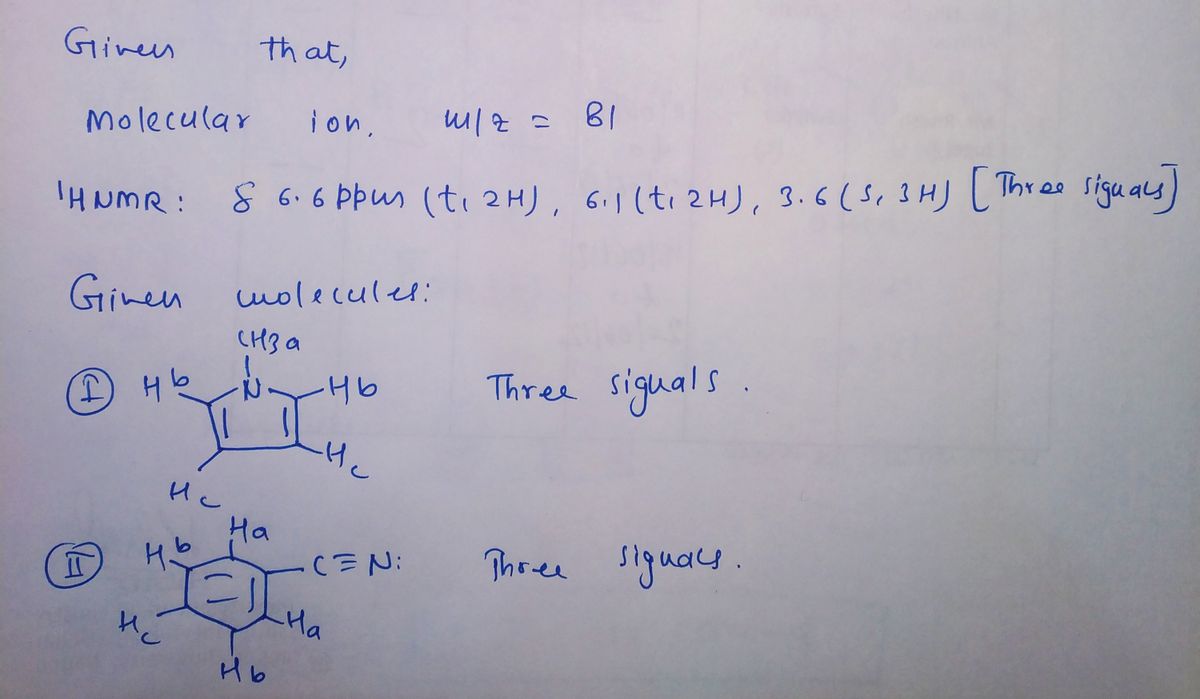 Given that,
Molecular ion, m/z = 81
¹HNMR: δ 6.6 ppm (t, 2H), 6.1 (t, 2H), 3.6 (s, 3H) [Three signals]
Given molecules:
CH3 a
I Hb N Hb Three signals.
Hc
Hc
Ha
II Hb C≡N: Three signals.
Hc Ha
Hb